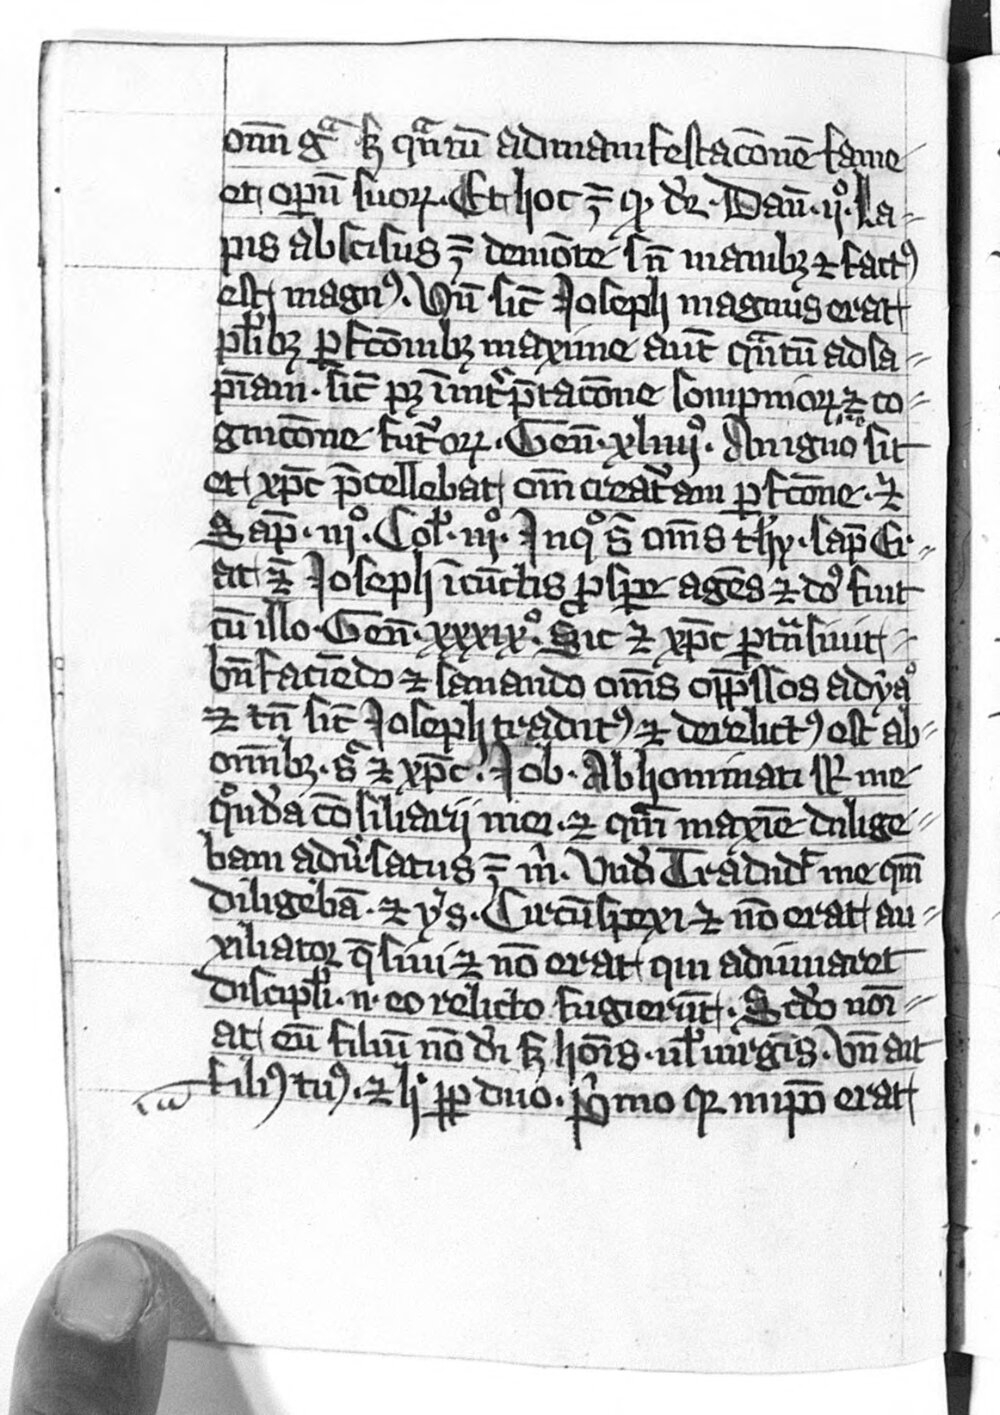 om̄i gᵃ sꝫ qᵃntū ad manifestac̄onē fame
et oꝑū suoꝝ. Et hoc ē qꝫ dr̄. Dan̄. ijº. La⸗
pis abscisus ē de mōte sn̄ manibꝫ ⁊ fact⁹
est magn⁹. Vn̄ sic̄ Joseph magnus erat
pl̄ibꝫ ꝑfc̄onibꝫ maxime aut̄ qᵃntū ad sa⸗
pn̄am. sic̄ pꝫ ī int̄p̄tac̄one sompnioꝝ ⁊ co⸗
gnic̄one fut̄oꝝ. Gen̄. xliiijº. An ignoᵃᵗⁱˢ sit
et xp̄c p̄cellebat om̄ creat̄am ꝑfc̄one. ⁊
Sap̄. iijº. Col̄. ijº. In qº s̄ om̄s thꝫ. sap̄ Er⸗
at ⁊ Joseph ī cūctis ꝓspe agēs ⁊ dn̄s fuit
cū illo. Gen̄. xxxixº. Sic ⁊ xp̄c ꝑtn̄siuit
bn̄faciēdo ⁊ sanando om̄s opp̄ssos a dyaº
⁊ tn̄ sic̄ Joseph tradit⁹ ⁊ derelict⁹ est ab⸗
om̄ibꝫ. sᶜ ⁊ xp̄c. Job. Abhominati sūt me
qºnda cōsiliarij mei. ⁊ quē maxīe dilige⸗
bam adu̾satus ē m̄. Vn̄ Tradidit me quē
diligebā. ⁊ ys. Circūspexi ⁊ nō erat au⸗
xiliator q̄siui ⁊ nō erat qui adiuuaret
discipl̄i. n. eo relicto fugierūt. Scd̄o noī⸗
at eū filiū nō dī sꝫ hoīs. ul̄ uirgīs. Vn̄ ait
fili⁹ tu⁹. ⁊ h̄ ꝓpt̄ duo. pͥmo qꝛ in ipō erat